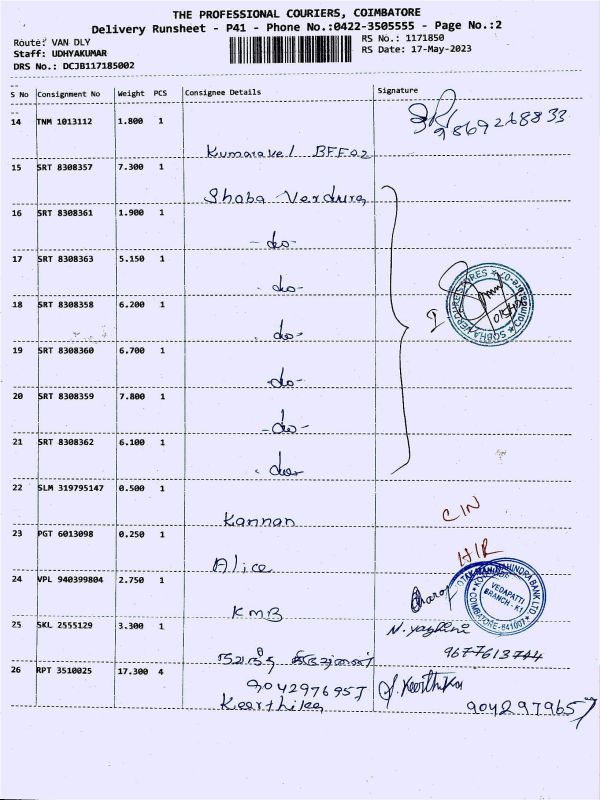 THE PROFESSIONAL COURIERS, COIMBATORE
Delivery Runsheet - P41 - Phone No.:0422-3505555 - Page No.:2
Route: VAN DLY
RS No.: 1171850
Staff: UDHYAKUMAR
RS Date: 17-May-2023
DRS No.: DCJB117185002
S No Consignment No Weight PCS Consignee Details Signature
14 TNM 1013112 1.800 1
9869268833
Kumaravel BFF02
15 SRT 8308357 7.300 1
Shoba Verdure
16 SRT 8308361 1.900 1
-do-
17 SRT 8308363 5.150 1
-do-
18 SRT 8308358 6.200 1
-do-
19 SRT 8308360 6.700 1
-do-
20 SRT 8308359 7.800 1
-do-
21 SRT 8308362 6.100 1
-do-
22 SLM 319795147 0.500 1
CIN
Kannan
23 PGT 6013098 0.250 1
HIR
Alice
24 VPL 940399804 2.750 1
KOTAK MAHINDRA BANK LTD
VEDAPATTI
BRANCH - K1
COIMBATORE-641007
KMB
25 SKL 2555129 3.300 1
9677613744
26 RPT 3510025 17.300 4
9042976957
Keerthika
Keerthika
9042979657